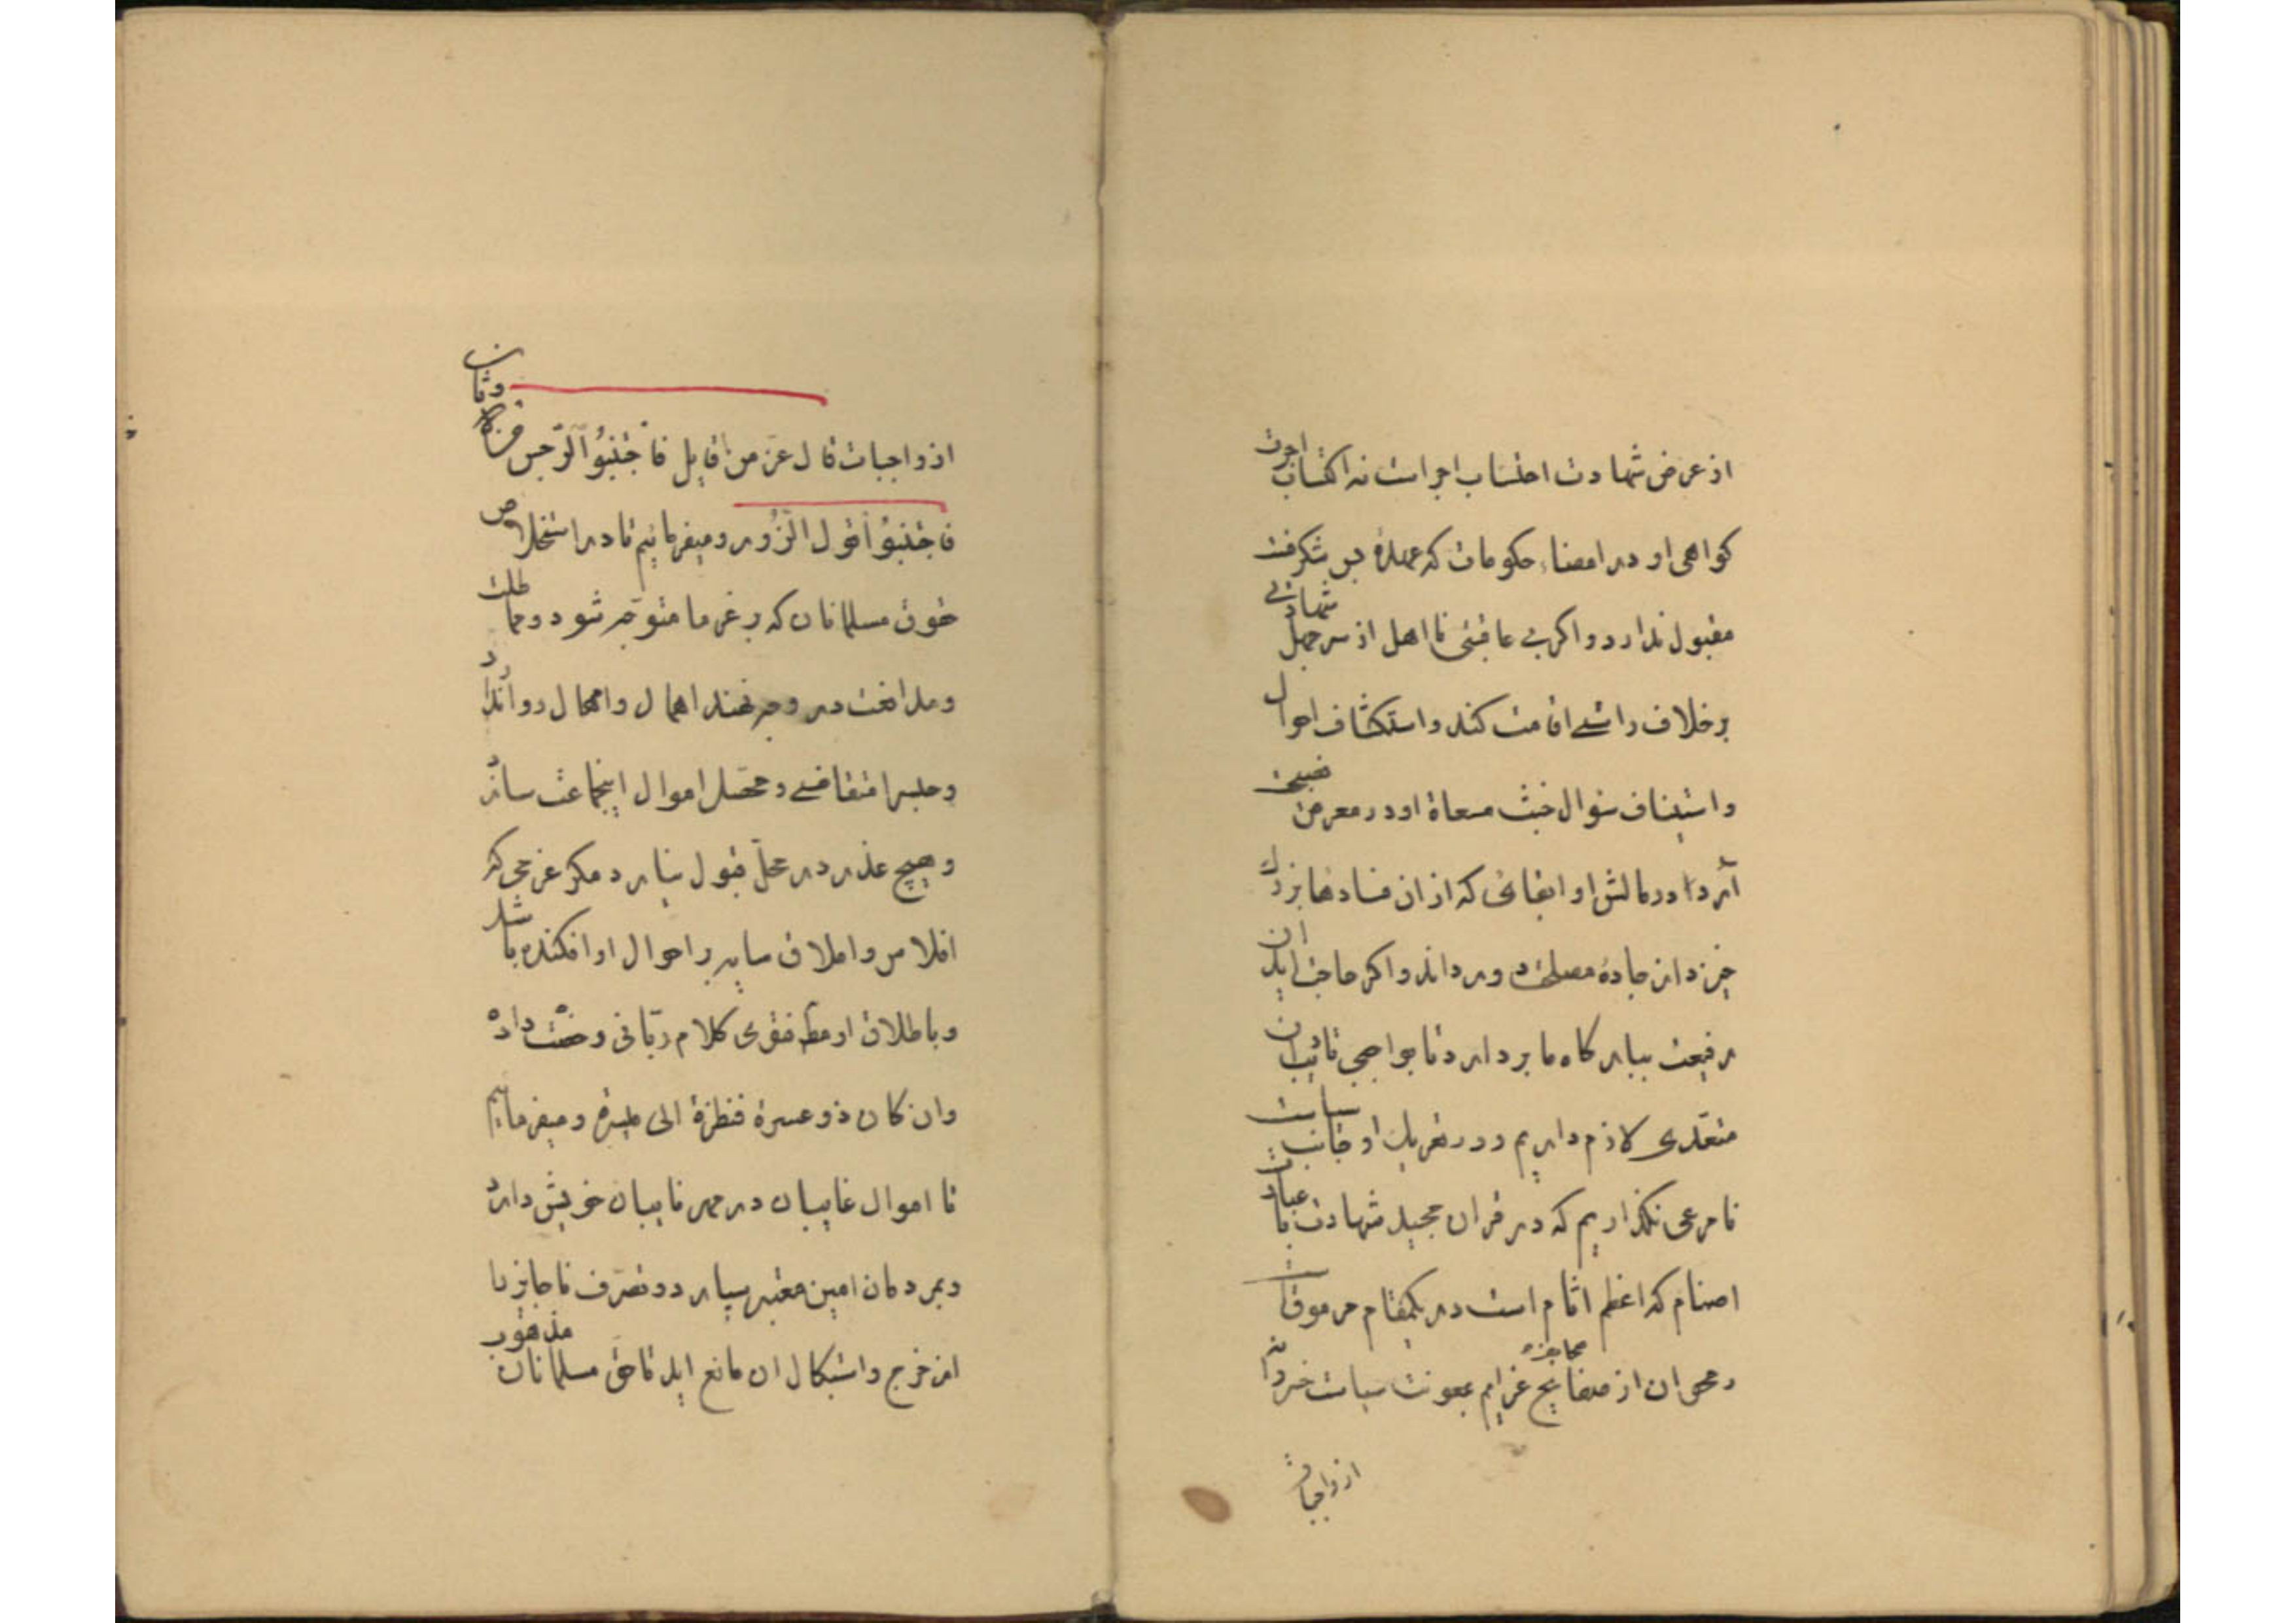 از عرض شهادت احتساب اجر است نه اکتساب اجرت
کواهی او در امضاء حکومات که عهدهٔ بس شکرفت
مقبول ندارد و اکر بی عاقبتی نااهل از سر جهل شهادتی
بر خلاف راستی اقامت کند و استکشاف احوال
و استیناف سوال خبث مسعاة او در معرض فضیحت
آرد در مالش او ابقائی که از ان فسادها بزرک
خیزد از جادهٔ مصلحت دور داند و اکر حاجت اید ان
رفیعت ببارکاه ما بردارد تا بواجبی تادیب ان
متعدی لازم داریم و در تعریک او جانب سیاست
نامرعی نکذاریم که در قران مجید شهادت با عبادت
اصنام که اعظم اثام است در یکمقام مرموقست
و محی ان از صفایح عزایم بمعونت سیاست خردانه
از واجبات
از واجبات قال عز من قایل فاجتنبوا الرجس من الاوثان
فاجتنبوا قول الزور و میفرمائیم تا در استخلاص
حقوق مسلمانان که بر غرما متوجه شود و مماطلت
و مدافعت در وجه نهند اهمال و امهال روا ندارد
و حلیرا متقاضی و محصل اموال اینجماعت سازد
و هیچ عذر در محل قبول نیارد مکر غرمی که
افلاس و املاق سایه بر احوال او افکنده باشد
و باطلاق او مطلق فتوی کلام ربانی رخصت داده
وان کان ذو عسرة فنظرة الی میسرة و میفرماییم
تا اموال غایبیان در مهر نایبان خویش دارد
و بمردمان امین معتبر سپارد و تصرف ناجایز را
از خرج و استیکال ان مانع اید تا حق مسلمانان مذهوب